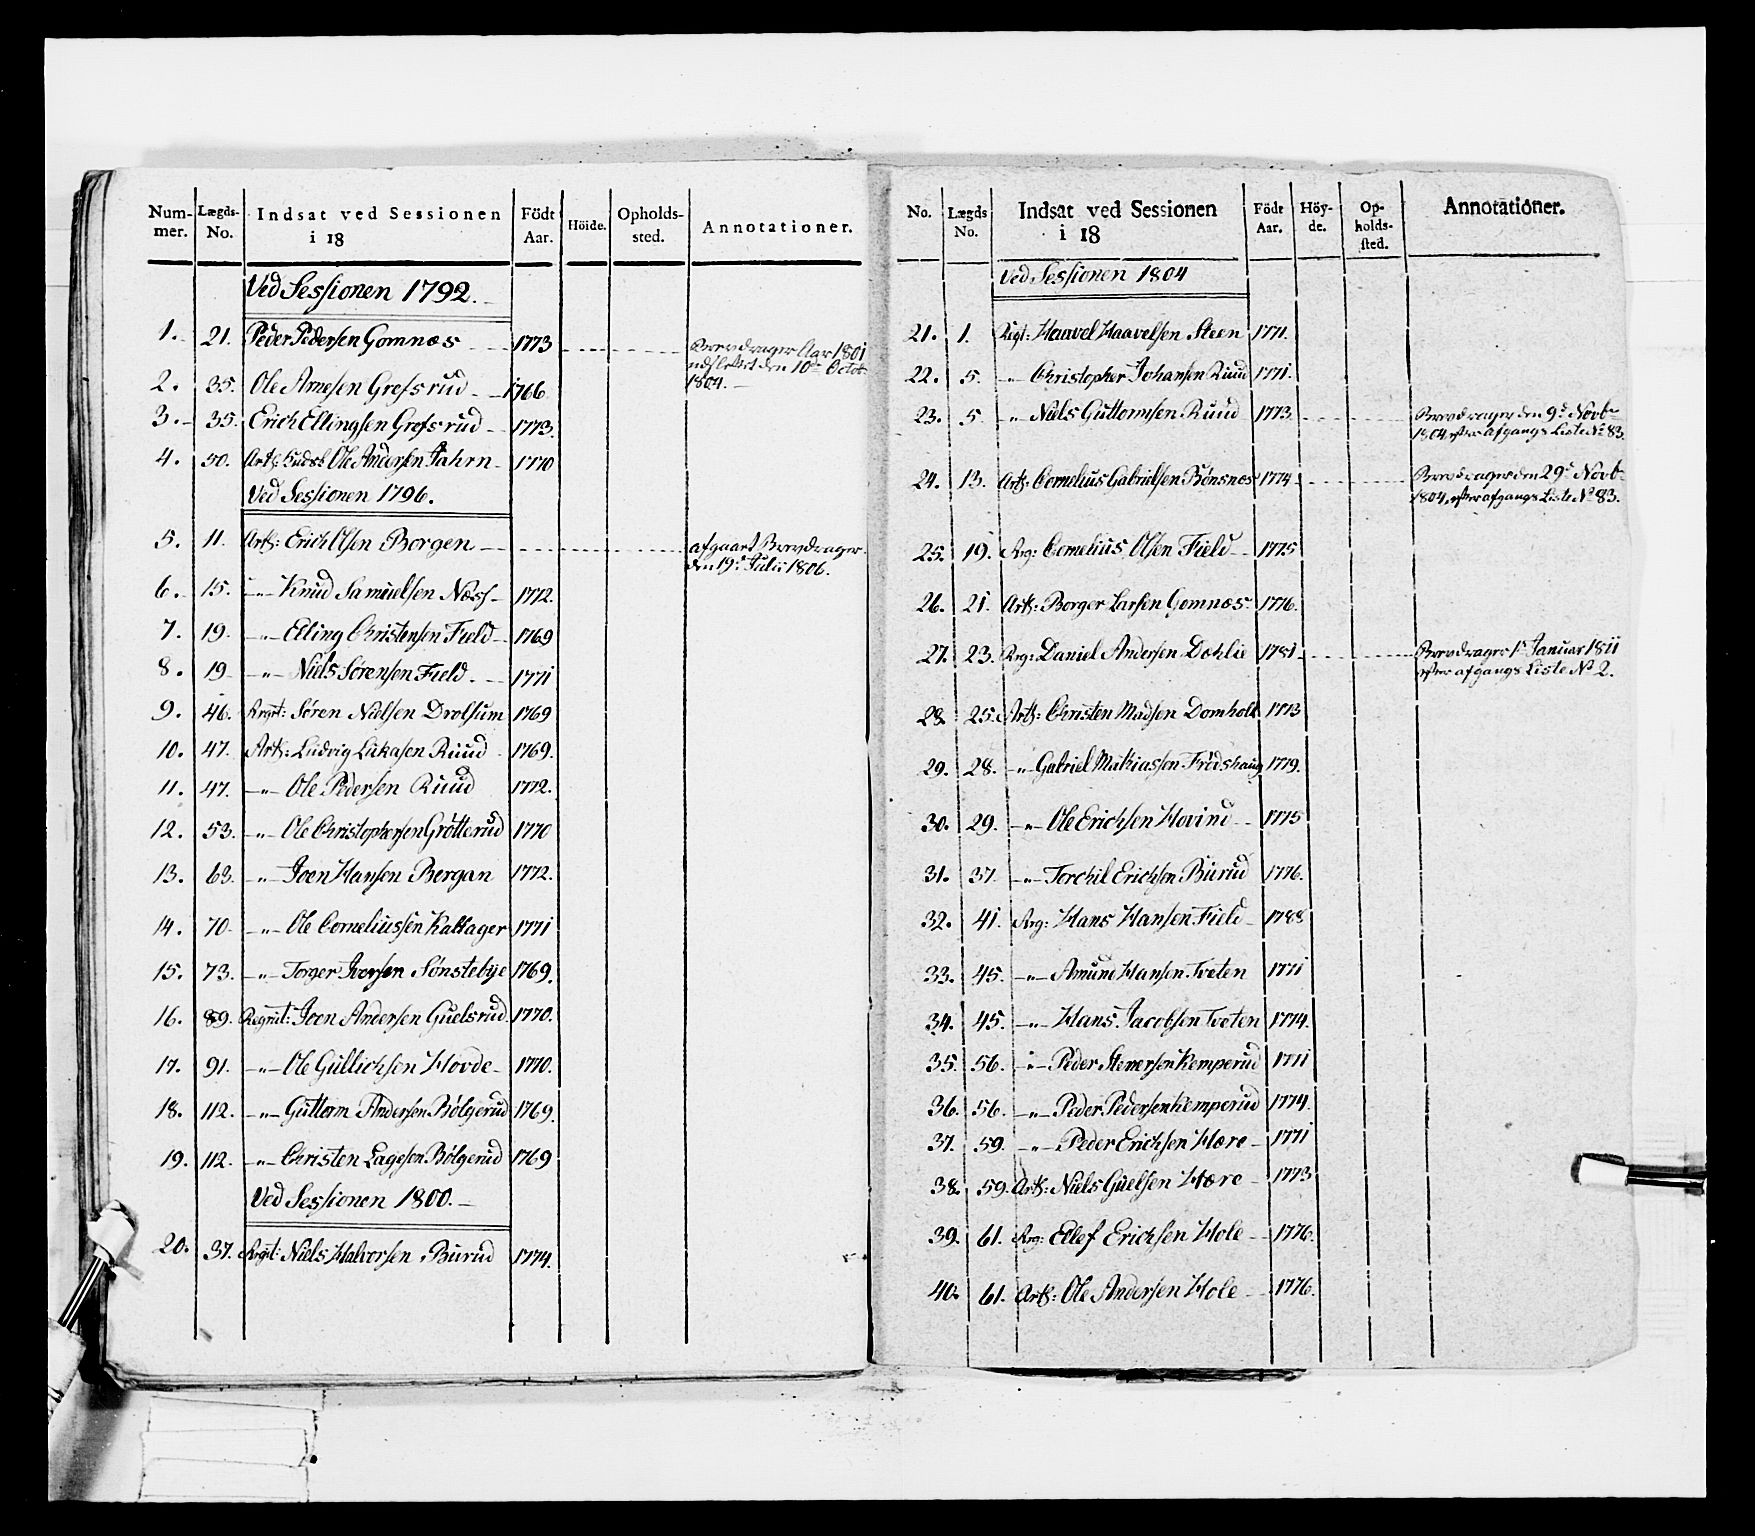 Num- Lægds- Indsat ved Sessionen Födt Höide. Opholds- Annotationer.
mer. No. i 18 Aar. sted.
Ved Sessionen 1792.
1. 21. Peder Pedersen Gomnæs 1773 Brevdrager Aar 1801
udslettet den 10de Octob:
1804.
2. 35. Ole Arnesen Grefsrud 1766
3. 35. Erich Ellingsen Grefsrud 1773.
4. 50. Art: Ole Andersen Fahrn 1770
Ved Sessionen 1796.
5. 11. Art: Erich Olsen Borgen afgaaet Brevdrager
den 19d Julii 1806.
6. 15. -"- Knud Samuelsen Næss 1772.
7. 19. -"- Elling Christensen Field 1769
8. 19 -"- Niels Sørensen Field. 1771
9. 46. Regnt: Søren Nielsen Drolsum 1769
10. 47. Art: Ludvig Lukasen Ruud 1769.
11. 47. -"- Ole Pedersen Ruud 1772.
12. 53. -"- Ole Christophersen Grøtterud 1770
13. 63. -"- Joen Hansen Bergan 1772.
14. 70 -"- Ole Corneliussen Kattager 1771
15. 73. -"- Torger Iversen Sønstebye 1769.
16. 89. Regmt: Joen Andersen Guelsrud. 1770.
17. 91. -"- Ole Gullichsen Hovde 1770.
18. 112. -"- Guttorm Andersen Bølgerud 1769.
19. 112. -"- Christen Lagesen Bølgerud 1769
Ved Sessionen 1800.
20. 37. Regt: Niels Halvorsen Burud 1774.
No. Lægds Indsat ved Sessionen Födt Höy- Op- Annotationer.
No. i 18 Aar. de. holds-
sted.
Ved Sessionen 1804
21. 1. Regt: Haavel Haavelsen Steen 1771.
22. 5. -"- Christopher Johansen Ruud 1771.
23. 5. " Niels Guttormsen Ruud 1773. Brevdrager den 9d Novbr
1804, efter afgangs Liste No 83.
24. 13. Art: Cornelius Gabrielsen Bønsnæs 1774. Brevdrager den 29d Novb
1804, efter afgangs Liste No 83.
25. 19. Rg: Cornelius Olsen Field 1775
26. 21. Art: Borger Larsen Gomnæs 1776.
27. 23. Rg: Daniel Andersen Dæhlie 1781 Brevdrager 1d Januar 1811
efter afgangs Liste No 2.
28 25. Art: Christen Madsen Domholt 1773
29. 28. -"- Gabriel Mathiassen Frødshaug 1779.
30. 29. -"- Ole Erichsen Hovind 1775
31. 37. -"- Torchil Erichsen Burud 1776.
32. 41. Rg: Hans Hansen Field 1788
33. 45. -"- Amund Hansen Tveten 1771
34. 45. -"- Hans Jacobsen Tveten 1774.
35. 56. -"- Peder Stenersen Kemperud 1771
36. 56. -"- Peder Pedersen Kemperud 1774.
37. 59. -"- Peder Erichsen Hære 1771
38. 59. Art: Niels Guelsen Hære 1773
39. 61. Rg: Ellef Erichsen Hole 1776.
40. 61. Art: Ole Andersen Hole 1776.